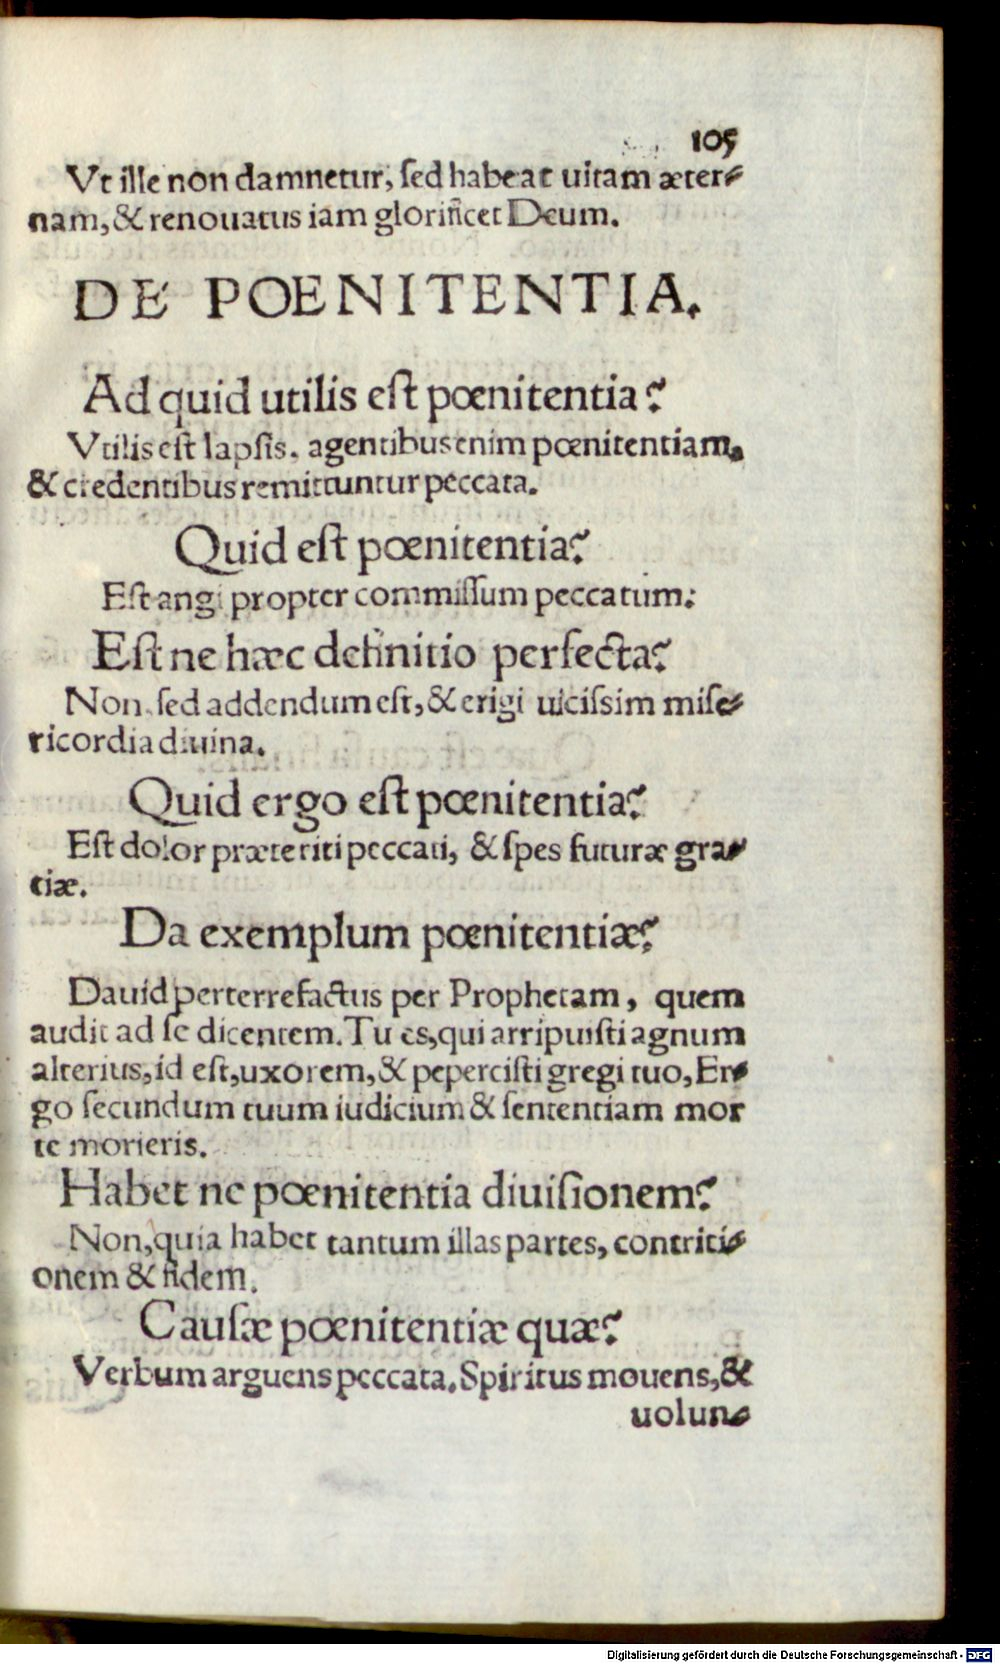 105
Vt ille non damnetur, sed habeat uitam æter-
nam, & renouatus iam glorificet Deum.
DE POENITENTIA.
Ad quid utilis est pœnitentia?
Vtilis est lapsis. agentibus enim pœnitentiam,
& credentibus remittuntur peccata.
Quid est pœnitentia?
Est angi propter commissum peccatum:
Est ne hæc definitio perfecta?
Non. sed addendum est, & erigi uicissim mise-
ricordia diuina.
Quid ergo est pœnitentia?
Est dolor præteriti peccati, & spes futuræ gra-
tiæ.
Da exemplum pœnitentiæ?
Dauid perterrefactus per Prophetam, quem
audit ad se dicentem. Tu es, qui arripuisti agnum
alterius, id est, uxorem, & pepercisti gregi tuo, Er-
go secundum tuum iudicium & sententiam mor
te morieris.
Habet ne pœnitentia diuisionem?
Non, quia habet tantum illas partes, contriti-
onem & fidem.
Causæ pœnitentiæ quæ?
Verbum arguens peccata. Spiritus mouens, &
uolun-
Digitalisierung gefördert durch die Deutsche Forschungsgemeinschaft - DFG